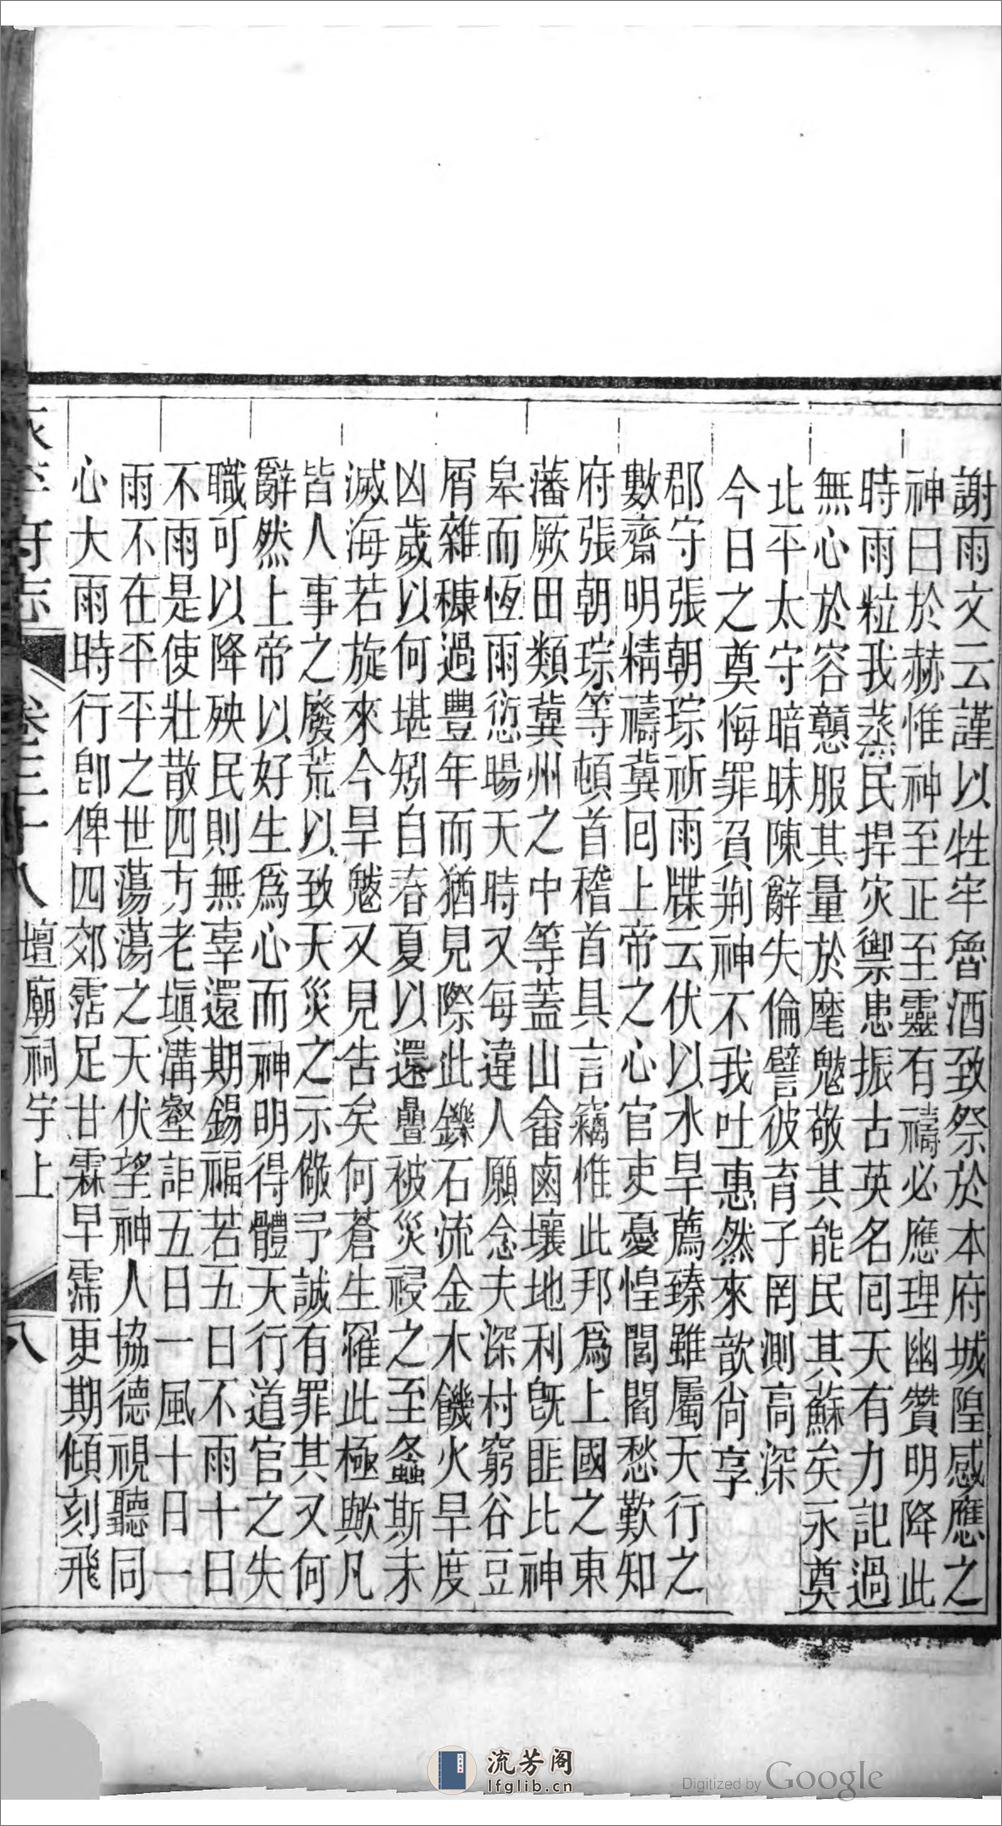 謝雨文云謹以牲牢魯酒致祭於本府城隍感應之
神曰於赫惟神至正至靈有禱必應理幽贊明降此
時雨粒我蒸民捍灾禦患振古英名囘天有力記過
無心於容戇服其量於麾魃敬其能民其蘇矣永奠
北平太守暗昧陳辭失倫譬彼育子罔測高深
今日之奠悔罪負荆神不我吐惠然來歆尙享
郡守張朝琮祈雨牒云伏以水旱薦臻雖屬天行之
數齋明精禱冀囘上帝之心官吏憂惶閭閻愁歎知
府張朝琮等頓首稽首具言竊惟此邦爲上國之東
藩厥田類冀州之中等蓋山畬鹵壤地利旣匪比神
皋而恆雨愆暘天時又每違人願念夫深村窮谷豆
屑雜糠過豐年而猶見際此鑠石流金木饑火旱度
凶歲以何堪矧自春夏以還疊被災祲之至螽斯未
滅海若旋來今旱魃又見告矣何蒼生罹此極歟凡
皆人事之廢荒以致天災之示儆予誠有罪其又何
辭然上帝以好生爲心而神明得體天行道官之失
職可以降殃民則無辜還期錫福若五日不雨十日
不雨是使壯散四方老塡溝壑詎五日一風十日一
雨不在平平之世蕩蕩之天伏望神人協德視聽同
心大雨時行卽俾四郊霑足甘霖早霈更期傾刻飛
永平府志 卷三十八 壇廟祠宇上 八
流芳阁
lfglib.cn
Digitized by Google